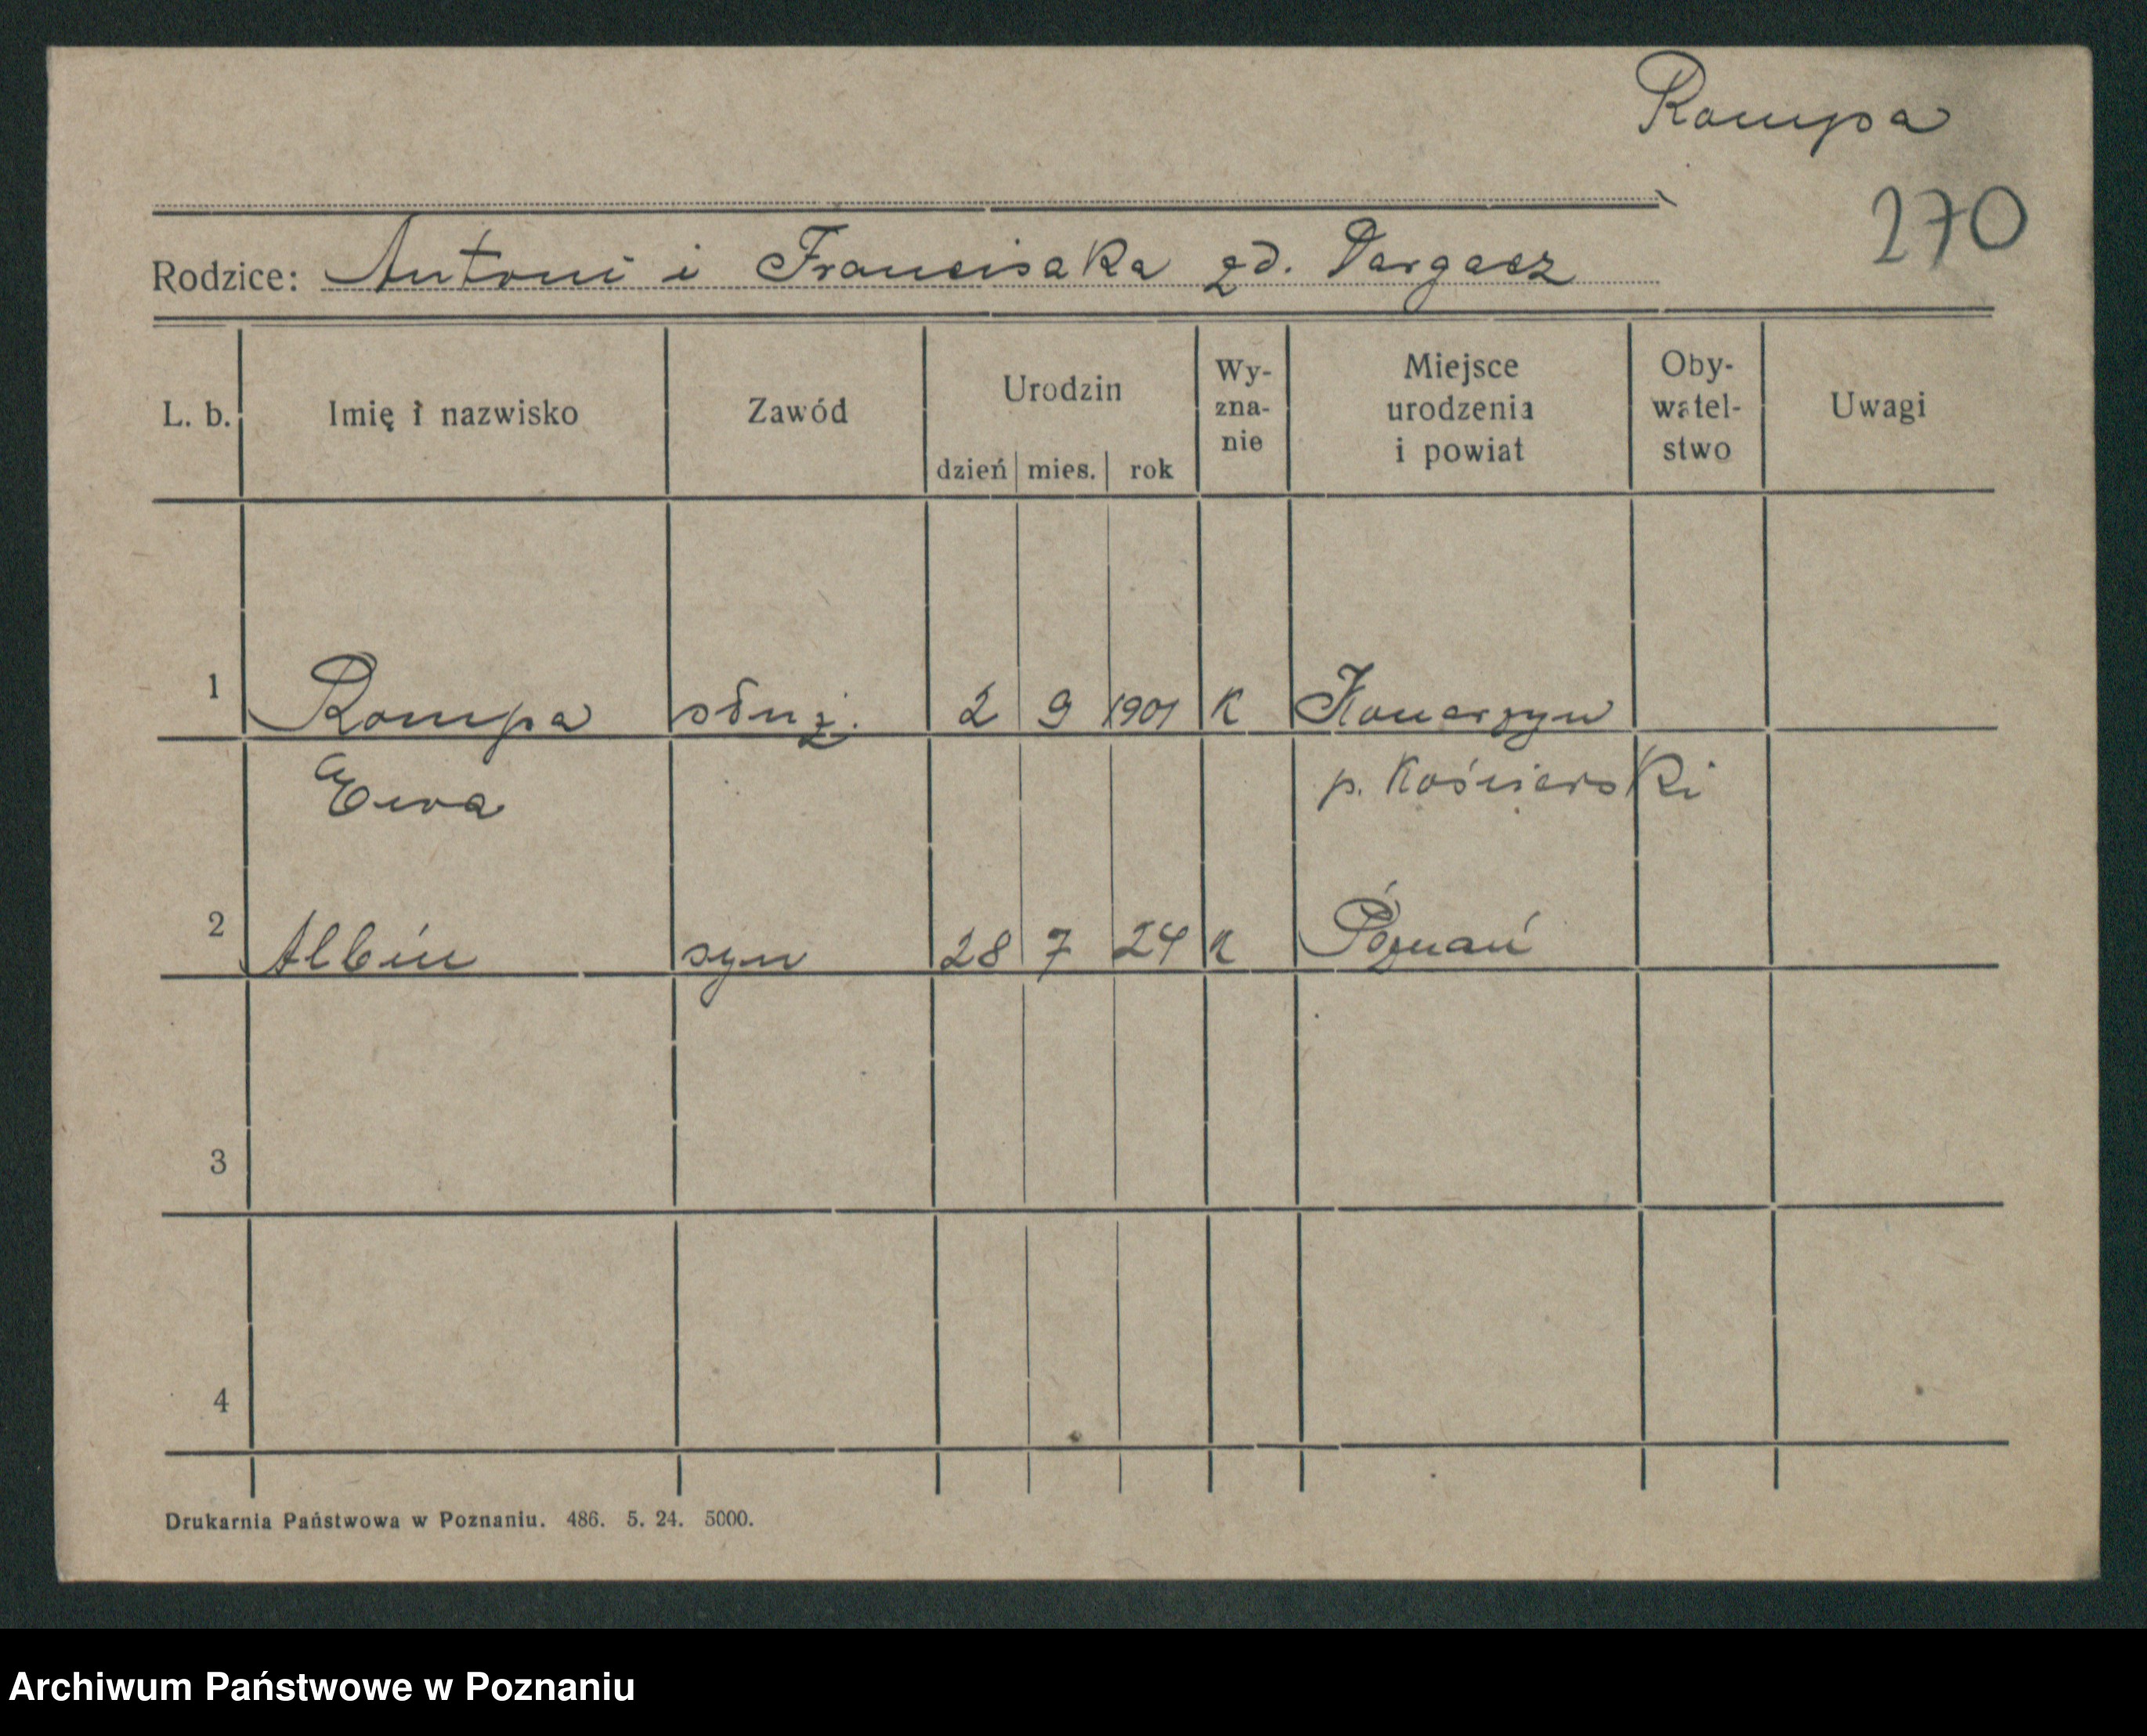 Rompa
270
Rodzice: Antoni i Franciszka zd. Dargacz
L. b. Imię i nazwisko Zawód Urodzin dzień mies. rok Wy- zna- nie Miejsce urodzenia i powiat Oby- watel- stwo Uwagi
1 Rompa służ. 2 9 1901 K Konarzyn
Ewa p. Kościerski
2 Albin syn 28 7 24 K Poznań
3
4
Drukarnia Państwowa w Poznaniu. 486. 5. 24. 5000.
Archiwum Państwowe w Poznaniu